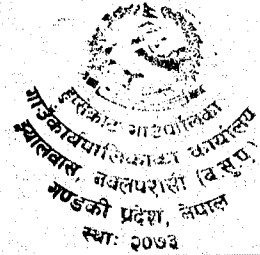 हुप्सेकोट गाउँपालिका
गाउँकार्यपालिकाको कार्यालय
झ्यालबास, नवलपरासी (ब.सु.पू.)
गण्डकी प्रदेश, नेपाल
स्था: २०७३